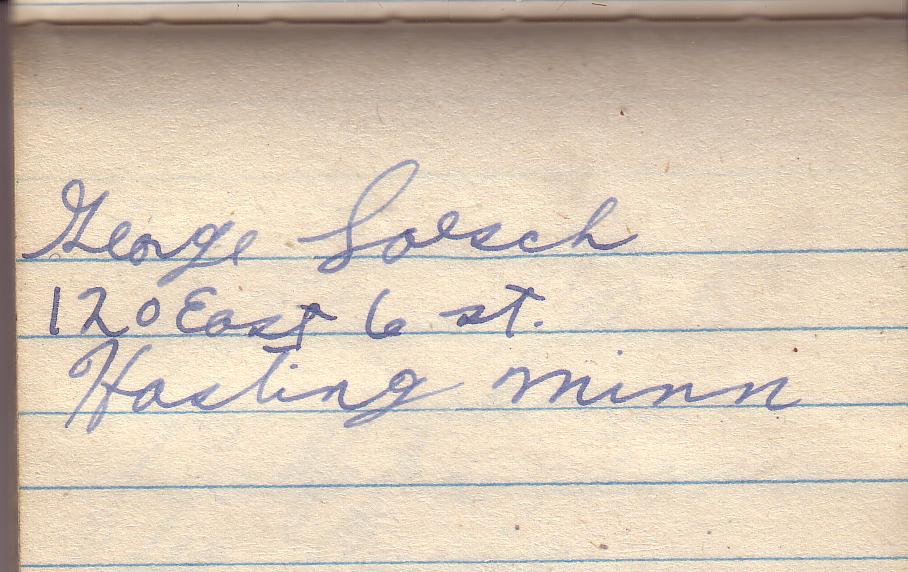 George Loesch
120 East 6 st.
Hasting Minn